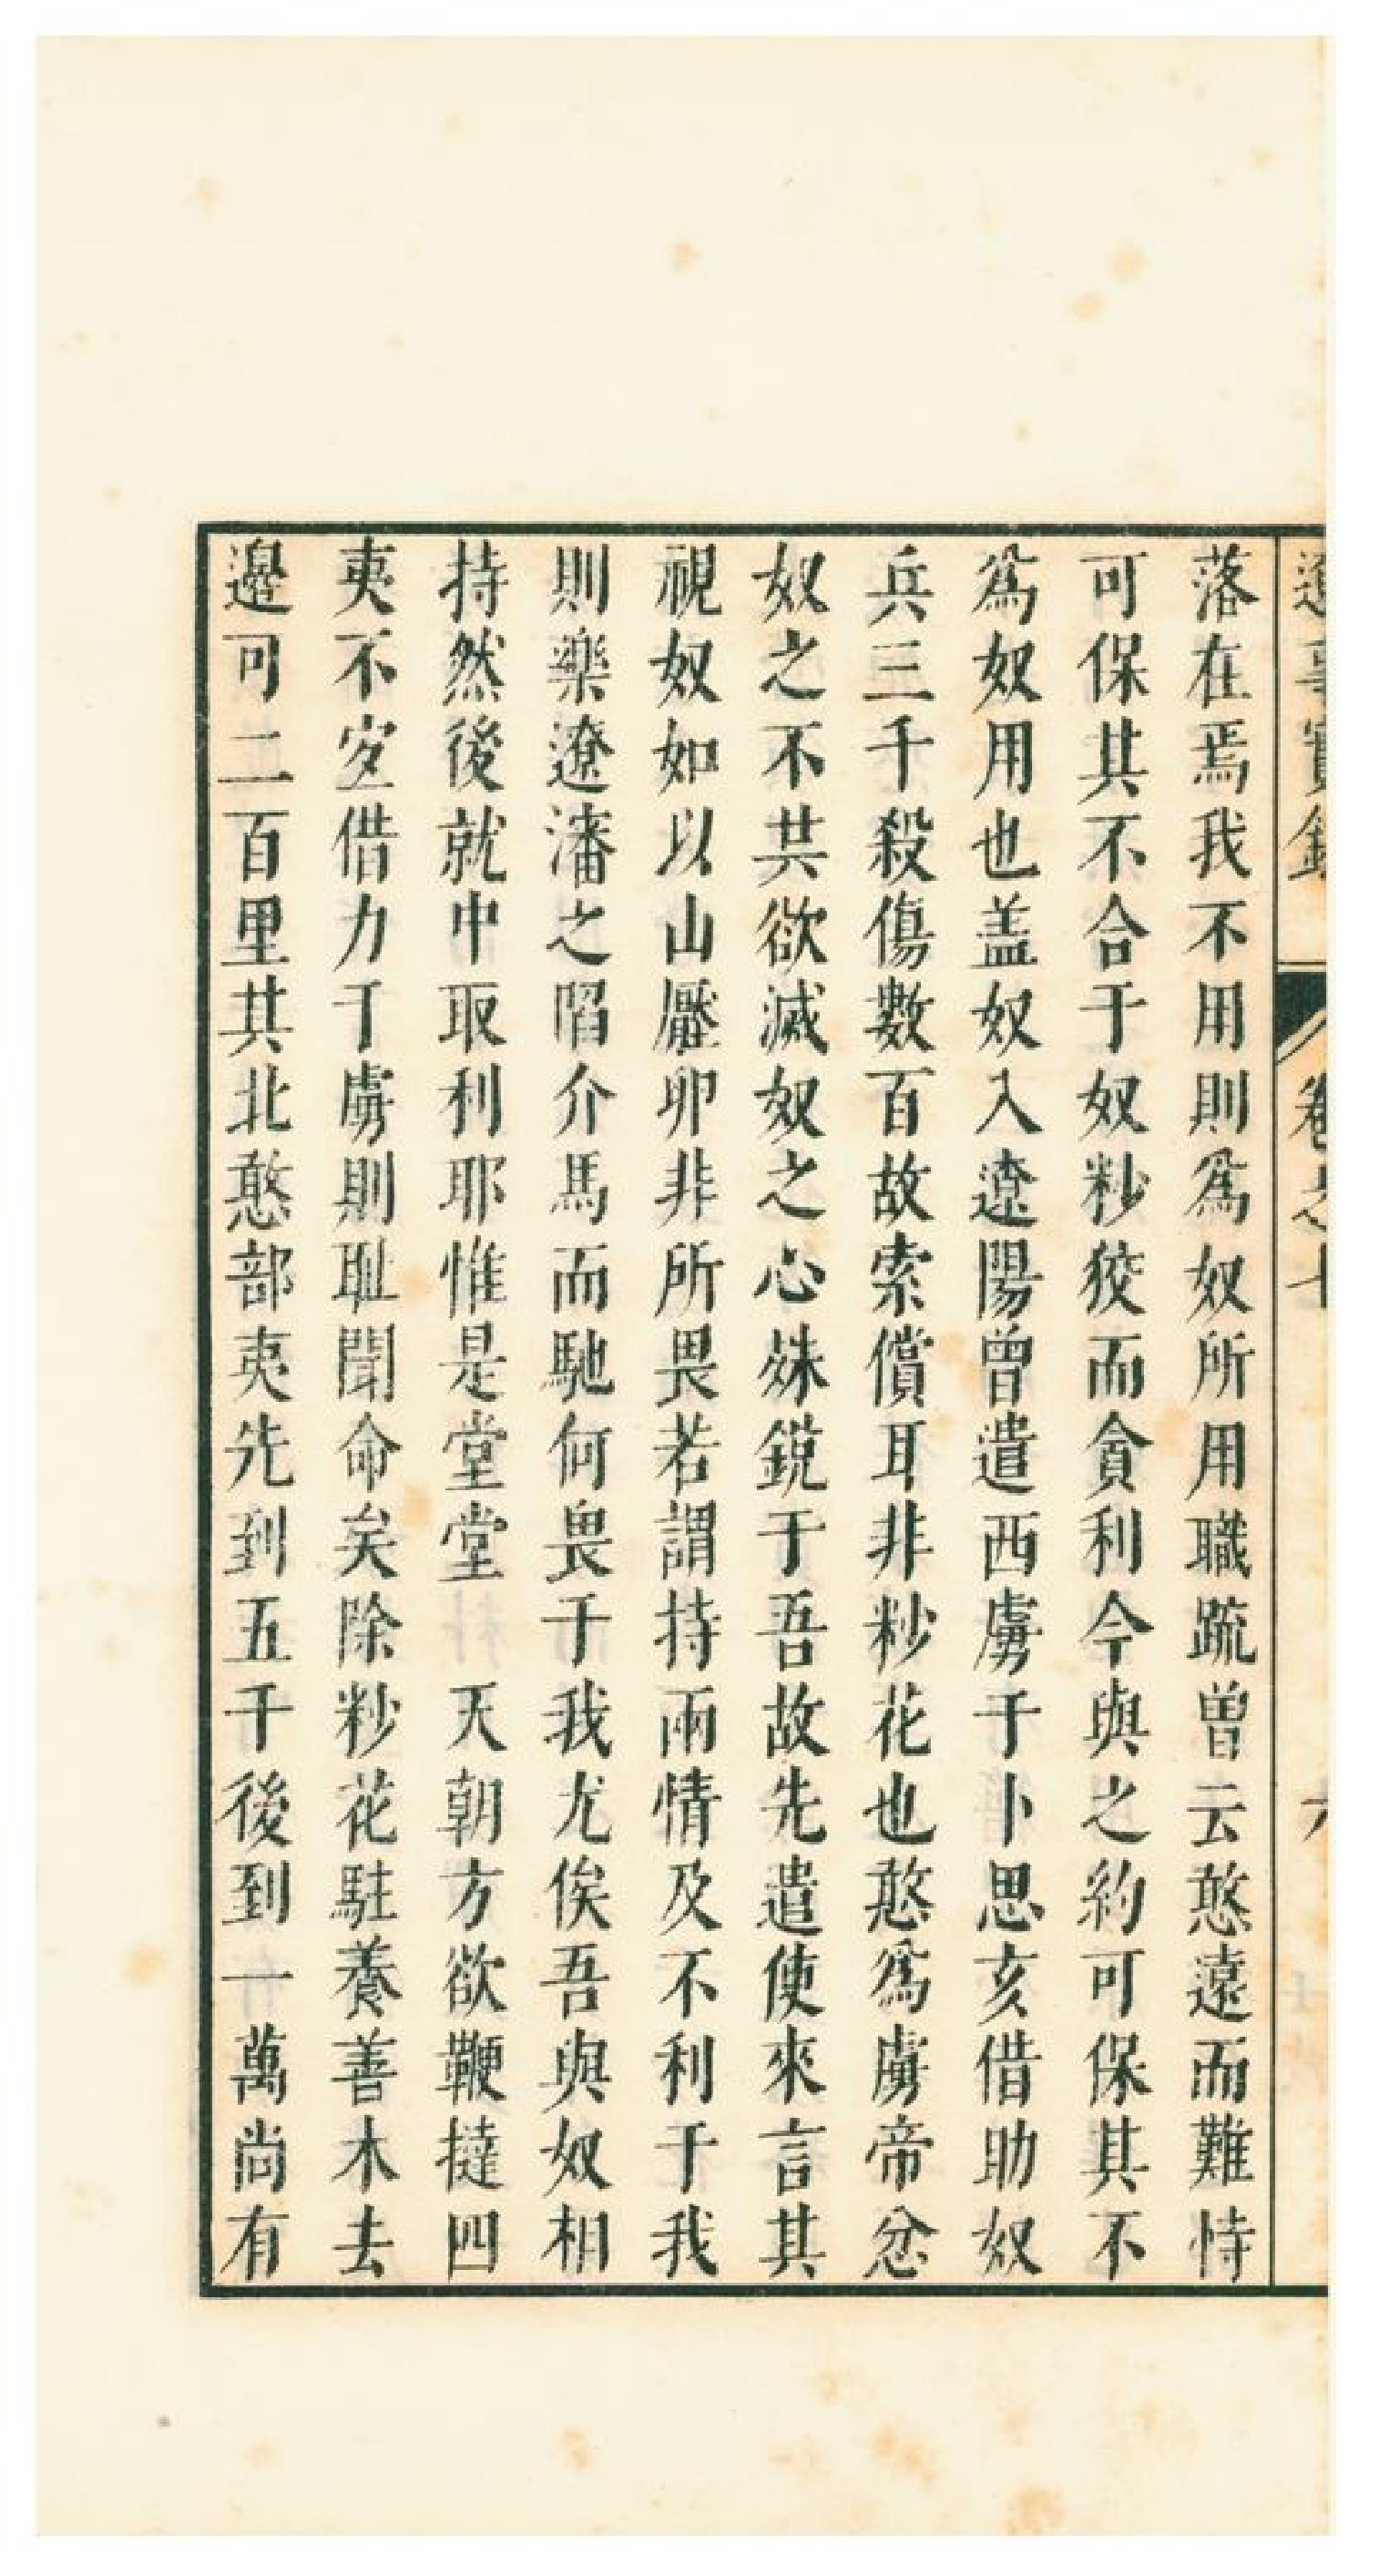 邊事實錄　卷之七　六
落在焉我不用則爲奴所用職䟽曾云憨遠而難恃
可保其不合于奴粆狡而貪利今與之約可保其不
爲奴用也盖奴入遼陽曾遣西虜于卜思亥借助奴
兵三千殺傷數百故索償耳非粆花也憨爲虜帝忿
奴之不共欲滅奴之心殊銳于吾故先遣使來言其
視奴如以山壓卵非所畏若謂持兩情及不利于我
則樂遼瀋之陷介馬而馳何畏于我尤俟吾與奴相
持然後就中取利耶惟是堂堂　天朝方欲鞭撻四
夷不宐借力于虜則耻聞命矣除粆花駐養善木去
邊可二百里其北憨部夷先到五千後到一萬尚有